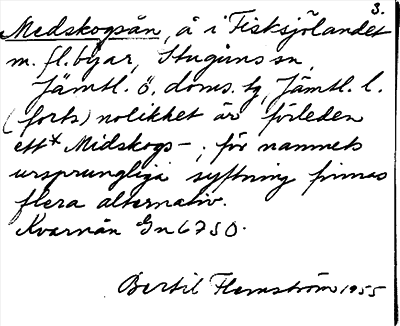 3.
Medskogsån, å i Fisksjölandet
m. fl. byar, Stuguns sn,
Jämtl. ö. doms. tg, Jämtl. l.
(forts) nolikhet är förleden
ett * Midskogs-; för namnets
ursprungliga syftning finnas
flera alternativ.
Kvarnån Gn 6750.
Bertil Flemström 1955